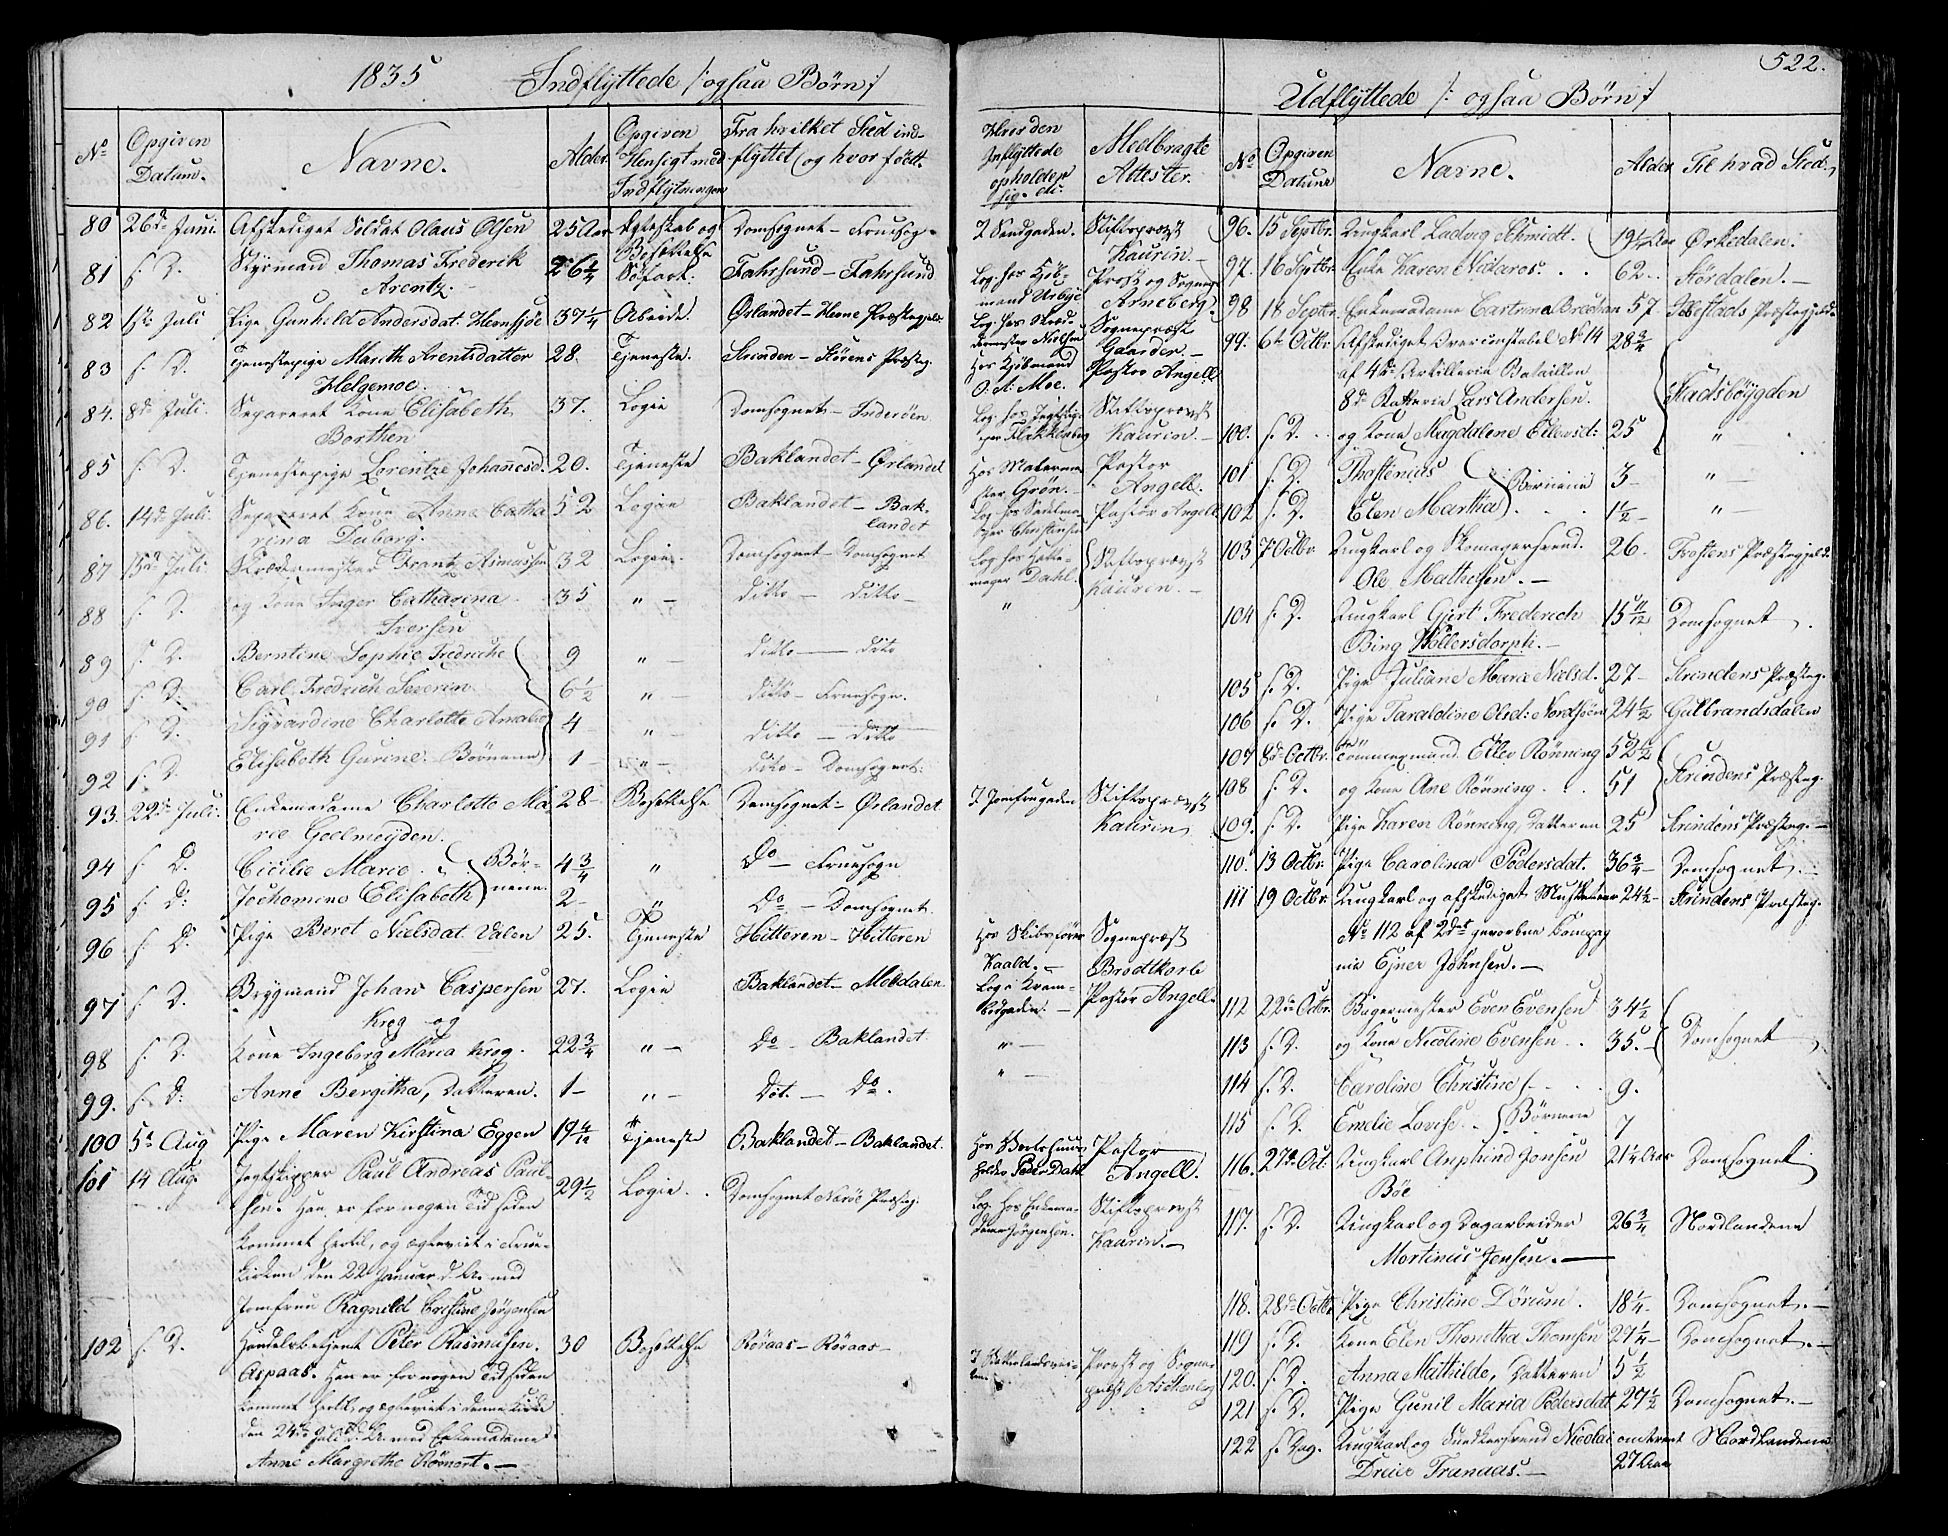 522.
1835 Indflyttede /: ogsaa Børn :/
No Opgiven Datum. Navne. Alder. Opgiven Hensigt med Indflytningen Fra hvilket Sted indflyttet (og hvor født. Hvor den Inflyttede opholder sig etc. Medbragte Attester.
80 26de Juni. Afskediget Soldat Olaus Olsen 25 Aar Egteskab og Bosættelse Domsognet – Fruesog. I Sandgaden. Stiftsprovst Kaurin. –
81 s. D. Styrmand Thomas Frederik Arentz. 26 1/4 Søfart. Fahrsund – Fahrsund Log. hos Kjøbmand Urbye Provst og Sognep. Arneberg.
82 1ste Juli Pige Gunhild Andersdat. Hemsjøe 37 1/4 Arbeide. Ørlandet – Hevne Præstegjeld. Log. hos Skrædermester Nielsen Sognepræst Gaarder. –
83 s. D. Tjenestepige Marith Arentsdatter Helgemoe. 28. Tjeneste. Strinden – Størens Præsteg. Hos Kjøbmand O. A. Moe. Pastor Angell
84. 8de Juli. Separeret Kone Elisabeth Borthen 37. Logie Domsognet – Inderøen Log. hos Jægtskipper Flakkenberg Stiftsprovst Kaurin. –
85 s. D. Tjenestepige Lorentze Johannesd. 20. Tjeneste Baklandet – Ørlandet Hos Malermester Grøn. – Pastor Angell.
86. 14de Juli. Separeret Kone Anne Catharina Daborg. 52 Logie Baklandet – Baklandet Pastor Angell
87 15de Juli. Skrædermester Frantz Asmussen 32 Logie. Domsognet – Domsognet Log. hos Hattemager Dahl. Stiftsprovst Kaurin. –
88 s. D. og Kone Inger Catharina Iversen 35 " – ditto – ditto – "
89 s. D. Berntine Sophie Fredriche 9 " – ditto – dito
90 s. D. Carl Fredrich Severin 6 1/2 " – ditto – Fruesogn.
91 s. D. Sigvardine Charlotte Amalie 4 – " – ditto – ditto
92 s. D. Elisabeth Gurine. Børnene 1 – " – dito – Domsognet.
93. 22de Juli. Enkemadame Charlotte Marie Geelmeyden. 28 – Bosættelse Domsognet – Ørlandet I Jomfrugaden Stiftsprovst Kaurin
94 s. D. Cicilie Marie. Børnene. 4 3/4 " Do – Fruesogn
95 s. D. Jochomine Elisabeth 2 – " Do. – Domsognet
96 s. D. Pige Beret Nielsdat. Valen 25. Tjeneste Hitteren – Hitteren Hos Skibsfører Kaald. – Sognepræst Brodtkorb
97 s. D. Brygmand Johan Caspersen Krog og 27. Logie Baklandet – Moldalen Log. i Krambodgaden. – Pastor Angell.
98 s. D. Kone Ingeborg Maria Krog. 22 3/4 " – Do – Baklandet. " –
99. s. D. Anne Bergitha, Datteren. 1 – " – Dit. – Do. " –
100 5te Aug Pige Maren Kirstina Eggen 19 Tjeneste Baklandet – Baklandet. Hos Vertshuusholder Peder Dahl Pastor Angell.
101 14 Aug. Jegtskipper Paul Andreas Paulsen. Han er for nogen Tid siden 29 1/2 Logie. Domsognet Nærøe Præsteg. Log. hos Enkemadame Jørgensen. Stiftsprovst Kaurin. –
kommet hertil, og egteviet i Fruekirken den 22 Januar d. A. med
Jomfrue Ragnild Cristine Jørgensen
102 s. D. Handelsbetjent Peter Rasmusen Aspaas. Han er for nogen Tid siden 30 Bosættelse Røraas – Røraas – Provst og Sognepræst
kommet hertil, og egteviet i denne Kirke
den 24de Juli d. A. med Enkemadame
Anne Margrethe Rønart. –
Udflyttede /: ogsaa Børn :/
No Opgiven Datum Navne. Alder Til hvad Sted.
96. 15 Septbr. Ungkarl Ludvig Schmidt. 19 1/2 Aar Ørkedalen.
97. 16 Septbr. Enke Karen Nidaros. 62. Størdalen. –
98 18 Septbr. Enkemadame Cartrina Bredman 57. Præstegjeld.
99. 6te Octbr. Afskediget Overconstabel No 14 28 3/4 Stadsbøygden
af 4de Artillerie Bataillon
8de Batterie Lars Andersen.
100. s. D. og Kone Magdalene Ellevsd. 25 "
101 s. D. Thostenius Børnene 3 – " –
102 s. D. Elen Martha 1 1/2 – " –
103 7 Octbr Ungkarl og Skomagersvend. Ole Mathisen. – 26. Frostens Præstegjeld.
104 s. D. Ungkarl Gjert Frederich Bing Wøllersdorph. – 15 11/12 Domsognet
105 s. D. Pige Juliane Marie Nielsd. 27 – Strindens Præsteg.
106 s. D. Pige Taraldine Olsd. Nordsøen 24 1/2 Gulbrandsdalen
107 8de Octbr. Tømmermand. Ellev Rønning 52 1/2 Strindens Præsteg.
108 s. D. og Kone Ane Rønning. 51
109. s. D. Pige Karen Rønning, Datteren 25 Strindens Præsteg. –
110. 13 Octbr. Pige Carolina Pedersdat. 36 3/4 – Domsognet. –
111 19 Octbr. Ungkarl og afskediget Musketeer 24 1/2 – Strindens Præsteg.
No 112 af 2det gevorbne Kompagnie Ejner Johnsen. –
112 22de Octbr. Bagermester Even Evensen 34 1/2 Domsognet
113 s. D. og Kone Nicoline Evensen 35. –
114 s. D. Caroline Christine 9.
115 s. D. Emelie Lovise. Børnene 7
116. 27de Oct. Ungkarl Anphind Jonsen Bøe 21 1/4 Aar Domsognet
117. s. D. Ungkarl og Dagarbeider Mortinus Jensen. – 26 3/4 Nordlandene
118. 28de Octbr. Pige Christine Dørum. 18 1/4 – Domsognet. –
119 s. D. Kone Elen Thonetha Thomsen 27 1/4 – Domsognet. –
120. s. D. Anna Mathilde, Datteren 5 1/2
121 s. D. Pige Gunil Maria Pedersdat 27 1/2 Domsognet. –
122 s. Dag. Ungkarl og Snedkersvend Nicolai Dreier Tranaas. – omtrent 27 Aar Nordlandene